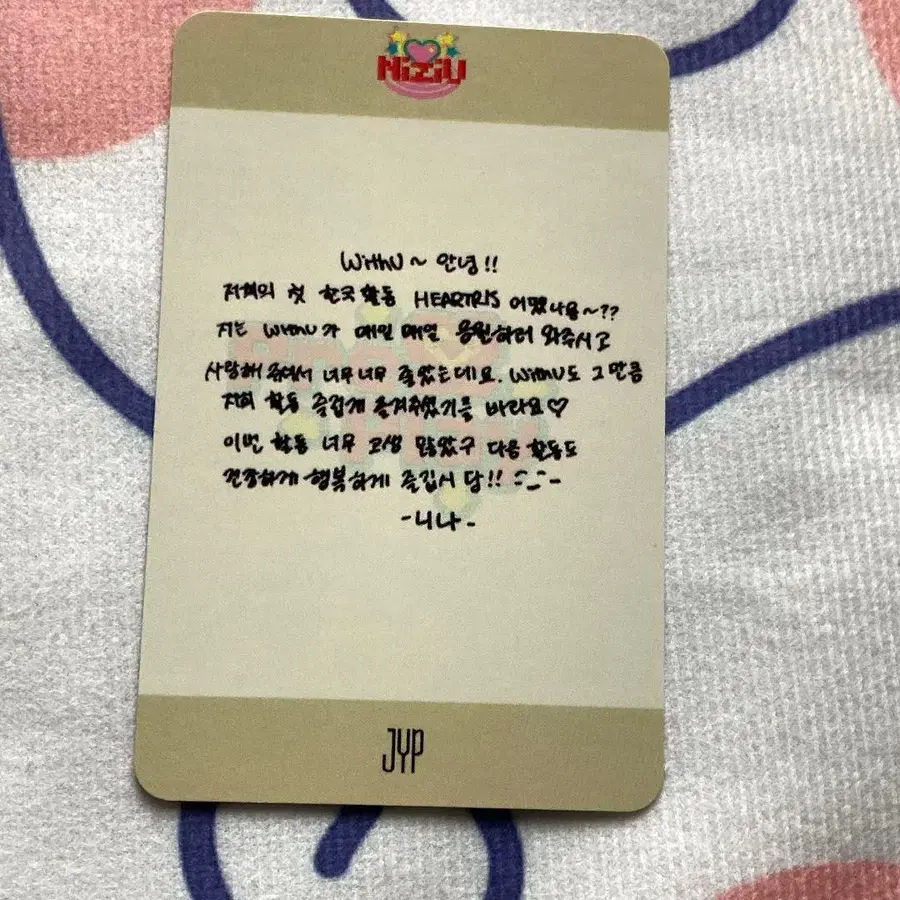 NiziU
WithU ~ 안녕!!
저희의 첫 한국 활동 HEARTRIS 어땠나용~??
저는 WithU가 매일 매일 응원하러 와주시고
사랑해 주셔서 너무너무 좋았는데요. WithU도 그만큼
저희 활동 즐겁게 즐겨주셨기를 바라요♡
이번 활동 너무 고생 많았구 다음 활동도
건강하게 행복하게 즐깁시당!!
-니나-
JYP